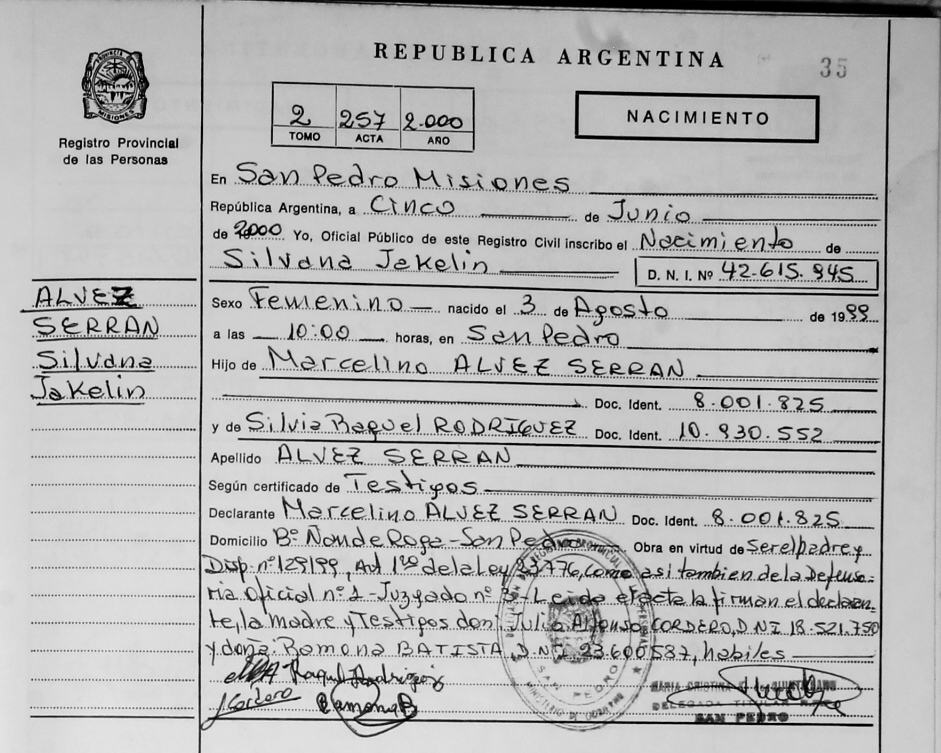 REPUBLICA ARGENTINA
35
PROVINCIA
MISIONES
Registro Provincial
de las Personas
2 257 2.000
TOMO ACTA AÑO
NACIMIENTO
En San Pedro Misiones
República Argentina, a Cinco de Junio
de 2000 Yo, Oficial Público de este Registro Civil inscribo el Nacimiento de
Silvana Jakelin D. N. I. Nº 42-615.845
ALVEZ
SERRAN
Silvana
Jakelin
Sexo Femenino nacido el 3 de Agosto de 1999
a las 10:00 horas, en San Pedro
Hijo de Marcelino ALVEZ SERRAN
Doc. Ident. 8.001.825
y de Silvia Raquel RODRIGUEZ Doc. Ident. 10.930.552
Apellido ALVEZ SERRAN
Según certificado de Testigos
Declarante Marcelino ALVEZ SERRAN Doc. Ident. 8.001.825
Domicilio Bº Ñande Roga - San Pedro Obra en virtud de Ser el padre y
Disp. nº 129/99, Art 1º de la Ley 23.776, como asi tambien de la Defenso-
ria Oficial nº 1 - Juzgado nº 3 - Leida el acta la firman el declaran-
te, la madre y Testigos don: Julio Alfonso CORDERO, D.N.I 18.521.750
y doña: Ramona BATISTA, D.N.I 23.600.587, habiles
Raquel Rodriguez
J Cordero Ramona B
MARIA CRISTINA
DELEGADA TITULAR
SAN PEDRO